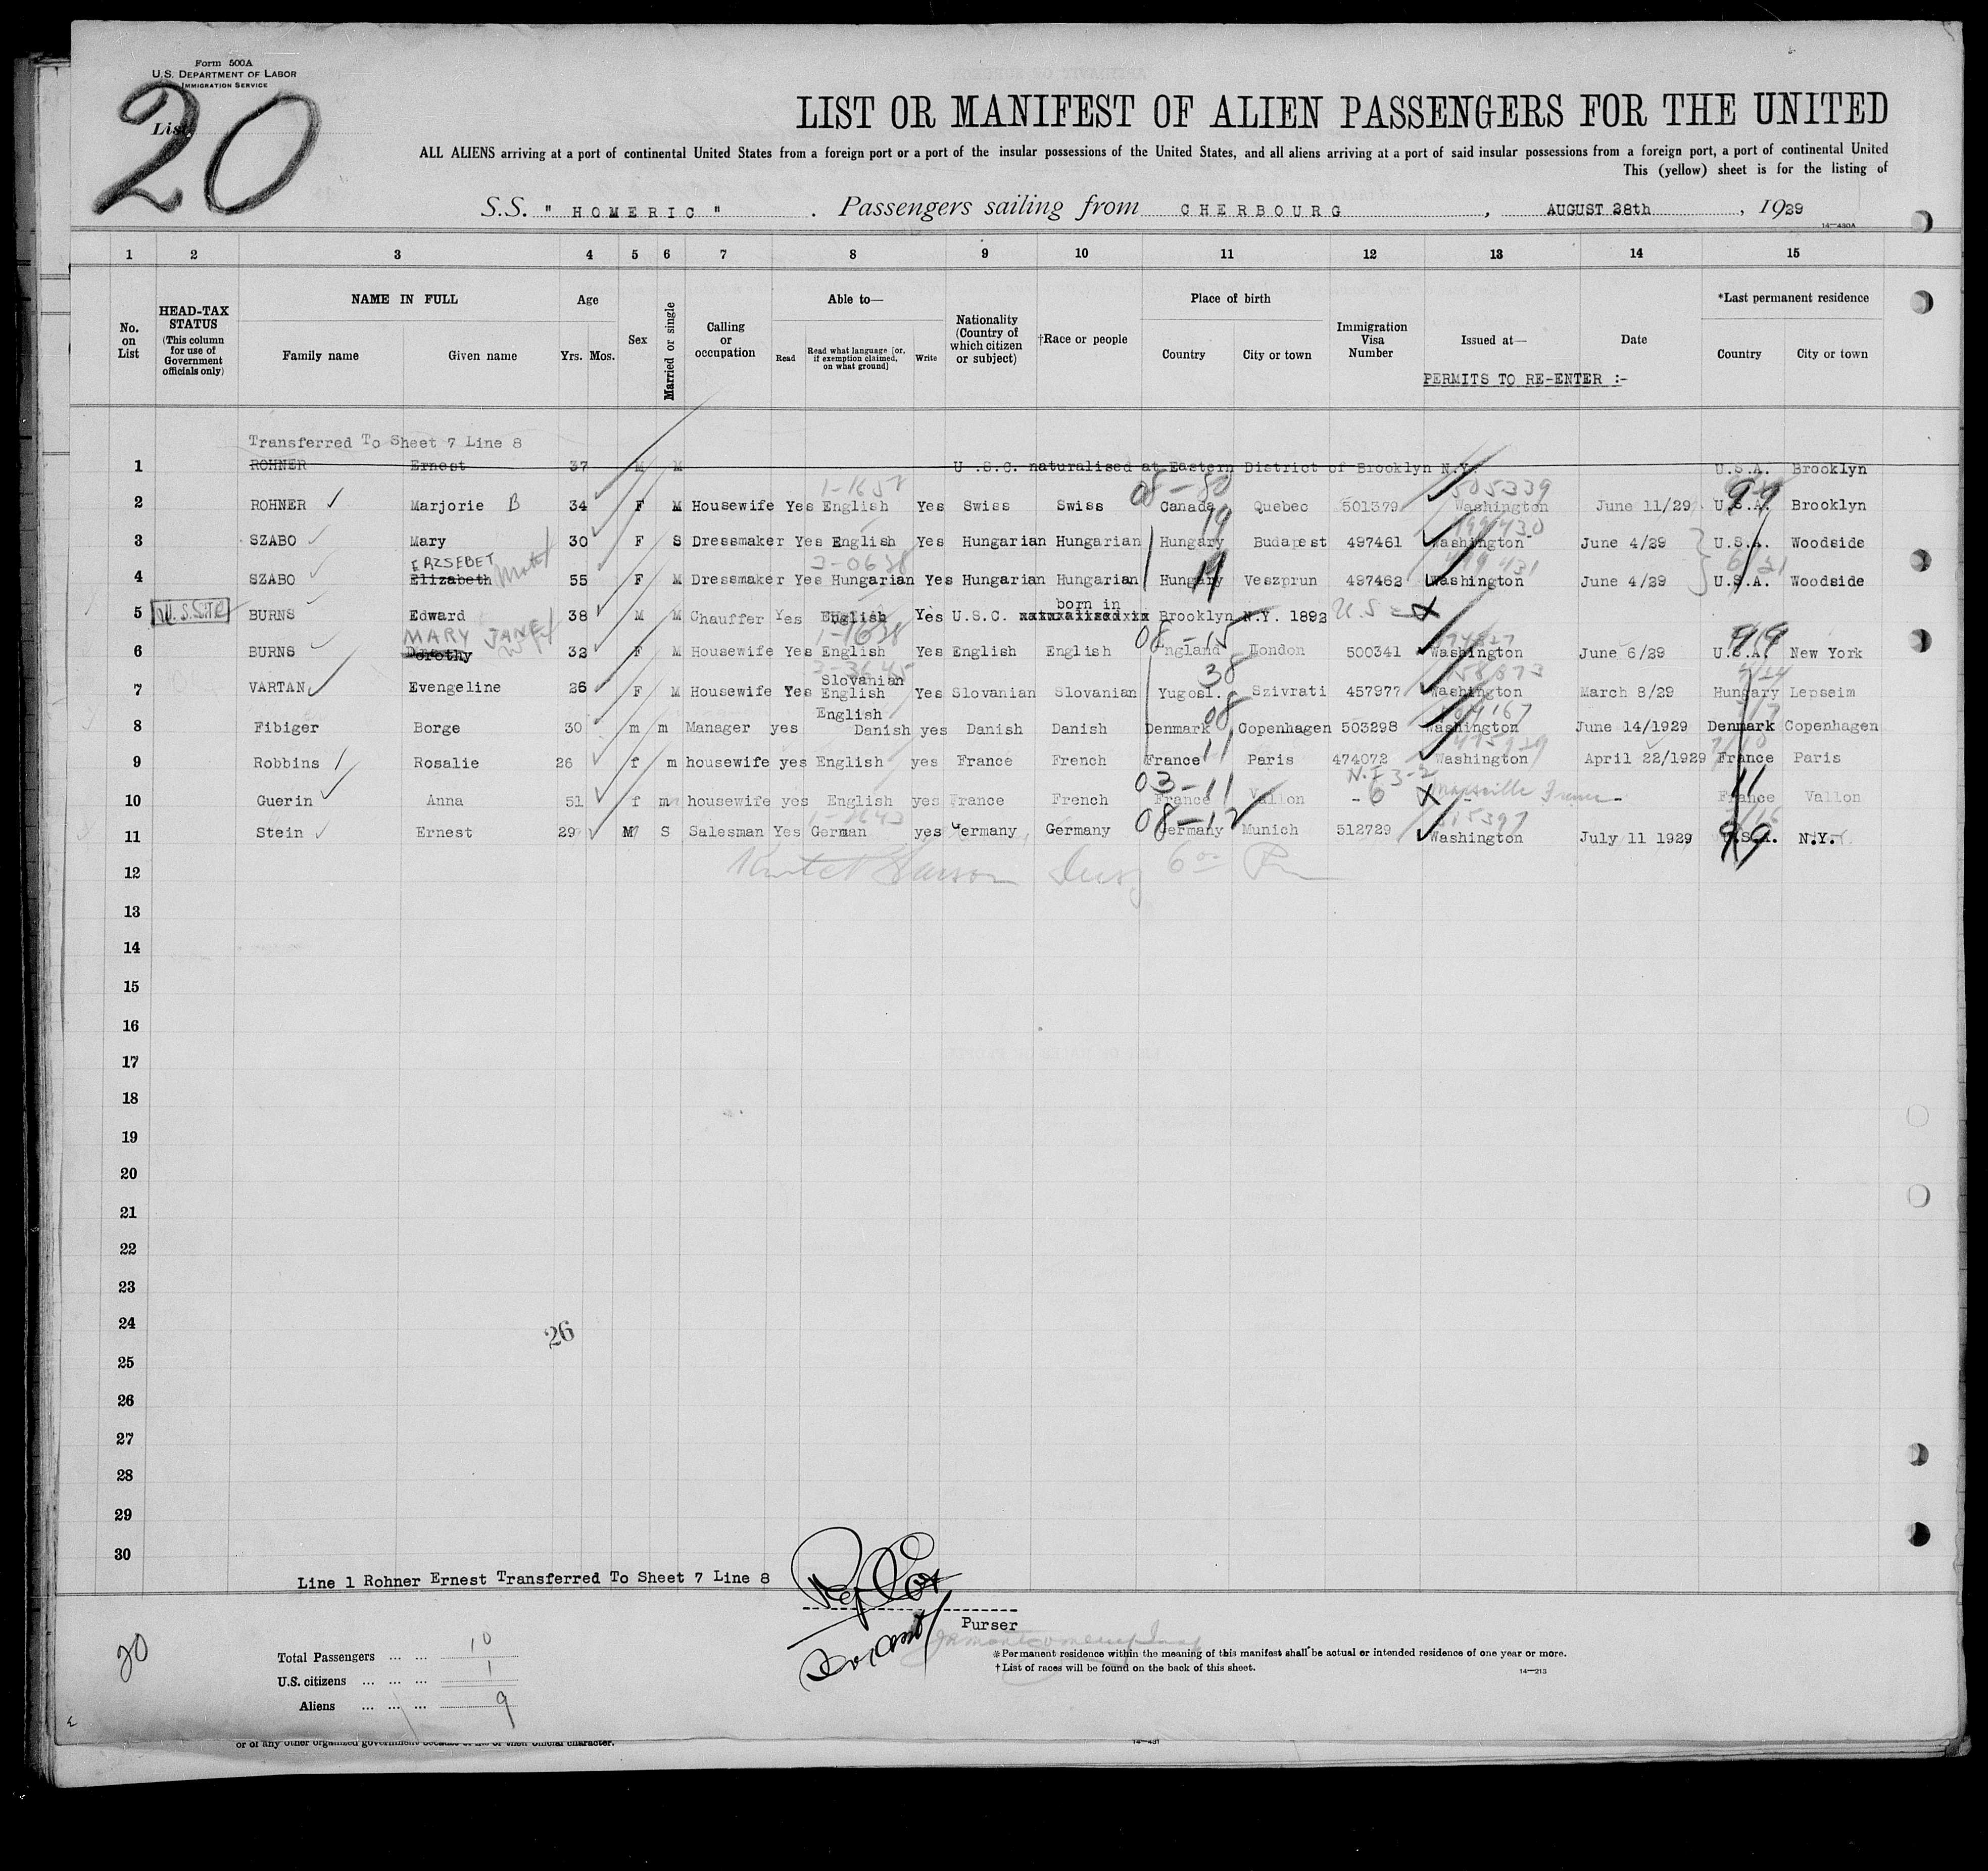 Form 500A
U.S. DEPARTMENT OF LABOR
IMMIGRATION SERVICE
List
20
LIST OR MANIFEST OF ALIEN PASSENGERS FOR THE UNITED
ALL ALIENS arriving at a port of continental United States from a foreign port or a port of the insular possessions of the United States, and all aliens arriving at a port of said insular possessions from a foreign port, a port of continental United
This (yellow) sheet is for the listing of
S.S. " HOMERIC " . Passengers sailing from CHERBOURG , AUGUST 28th , 1929
14—430A
1 2 3 4 5 6 7 8 9 10 11 12 13 14 15
No. on List
HEAD-TAX STATUS
(This column for use of Government officials only)
NAME IN FULL
Family name Given name
Age
Yrs. Mos.
Sex
Married or single
Calling or occupation
Able to—
Read
Read what language [or, if exemption claimed, on what ground]
Write
Nationality (Country of which citizen or subject)
†Race or people
Place of birth
Country City or town
Immigration Visa Number
Issued at—
PERMITS TO RE-ENTER :-
Date
*Last permanent residence
Country City or town
Transferred To Sheet 7 Line 8
1 ROHNER Ernest 37 M M U.S.C. naturalised at Eastern District of Brooklyn N.Y. U.S.A. Brooklyn
1-1657 08-80 505339 99
2 ROHNER Marjorie B 34 F M Housewife Yes English Yes Swiss Swiss Canada Quebec 501379 Washington June 11/29 U.S.A. Brooklyn
19 499430
3 SZABO Mary 30 F S Dressmaker Yes English Yes Hungarian Hungarian Hungary Budapest 497461 Washington June 4/29 U.S.A. Woodside
ERZSEBET 3-0638 499431
4 SZABO Elizabeth 55 F M Dressmaker Yes Hungarian Yes Hungarian Hungarian Hungary Veszprun 497462 Washington June 4/29 U.S.A. Woodside
19
born in
5 BURNS Edward 38 M M Chauffer Yes English Yes U.S.C. Brooklyn N.Y. 1892 U.S. X
MARY JANE Wife 1-1638 08-15 99
6 BURNS Dorothy 32 F M Housewife Yes English Yes English English England London 500341 Washington June 6/29 U.S.A. New York
Slovanian 38
7 VARTAN Evengeline 26 F M Housewife Yes English Yes Slovanian Slovanian Yugosl. Szivrati 457977 Washington March 8/29 Hungary Lepseim
English 08
8 Fibiger Borge 30 m m Manager yes Danish yes Danish Danish Denmark Copenhagen 503298 Washington June 14/1929 Denmark Copenhagen
11
9 Robbins Rosalie 26 f m housewife yes English yes France French France Paris 474072 Washington April 22/1929 France Paris
03-11 11
10 Guerin Anna 51 f m housewife yes English yes France French France Vallon - 6 X Marseille France - France Vallon
08-12 99
11 Stein Ernest 29 M S Salesman Yes German yes Germany Germany Germany Munich 512729 Washington July 11 1929 U.S.A. N.Y.
12
13
14
15
16
17
18
19
20
21
22
23
24
26
25
26
27
28
29
30
Line 1 Rohner Ernest Transferred To Sheet 7 Line 8
Purser
20
Total Passengers ... ... 10
U.S. citizens ... ... ... 1
Aliens ... ... ... 9
*Permanent residence within the meaning of this manifest shall be actual or intended residence of one year or more.
†List of races will be found on the back of this sheet.
14—213
or of any other organized government because of
or their official character.
14—431